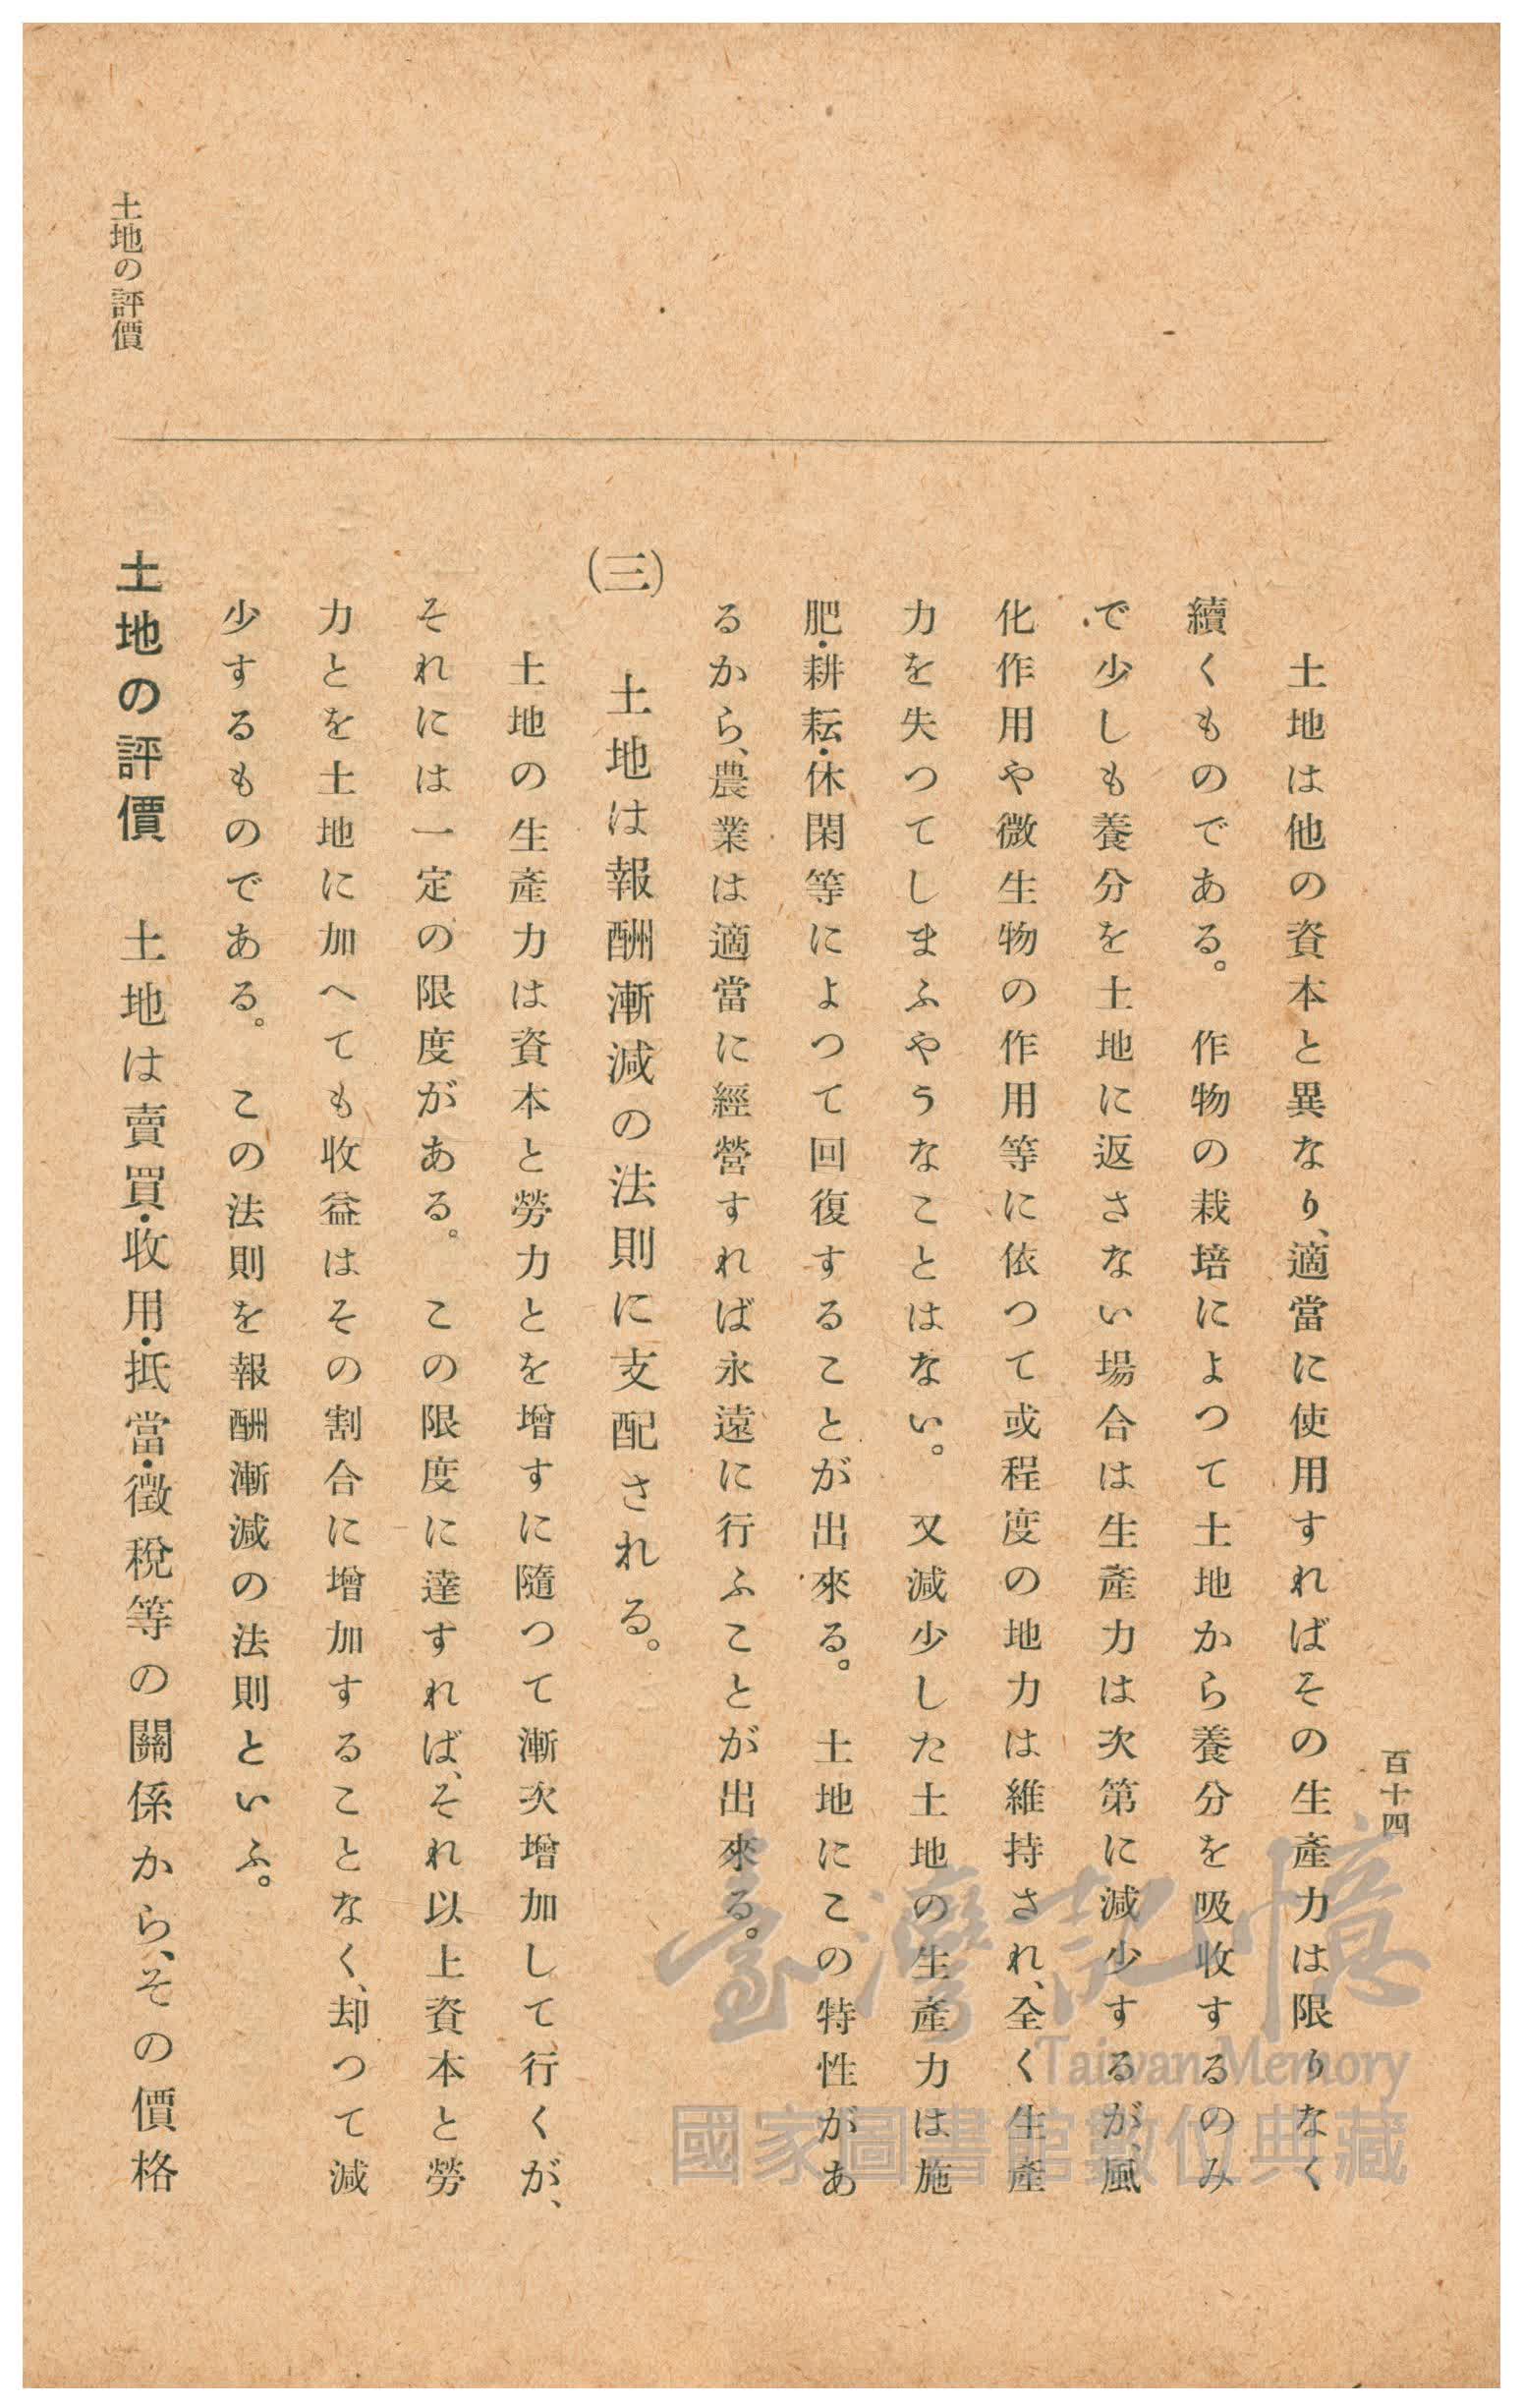 百十四
土地は他の資本と異なり、適當に使用すればその生產力は限りなく
續くものである。　作物の栽培によつて土地から養分を吸收するのみ
で少しも養分を土地に返さない場合は生產力は次第に減少するが、風
化作用や微生物の作用等に依つて或程度の地力は維持され、全く生產
力を失つてしまふやうなことはない。　又減少した土地の生產力は施
肥・耕耘・休閑等によつて回復することが出來る。　土地にこの特性があ
るから、農業は適當に經營すれば永遠に行ふことが出來る。
(三)　土地は報酬漸減の法則に支配される。
土地の生產力は資本と勞力とを增すに隨つて漸次增加して行くが、
それには一定の限度がある。　この限度に達すれば、それ以上資本と勞
力とを土地に加へても收益はその割合に增加することなく、却つて減
少するものである。　この法則を報酬漸減の法則といふ。
土地の評價　土地は賣買・收用・抵當・徵稅等の關係から、その價格
土地の評價
臺灣記憶
Taiwan Memory
國家圖書館數位典藏